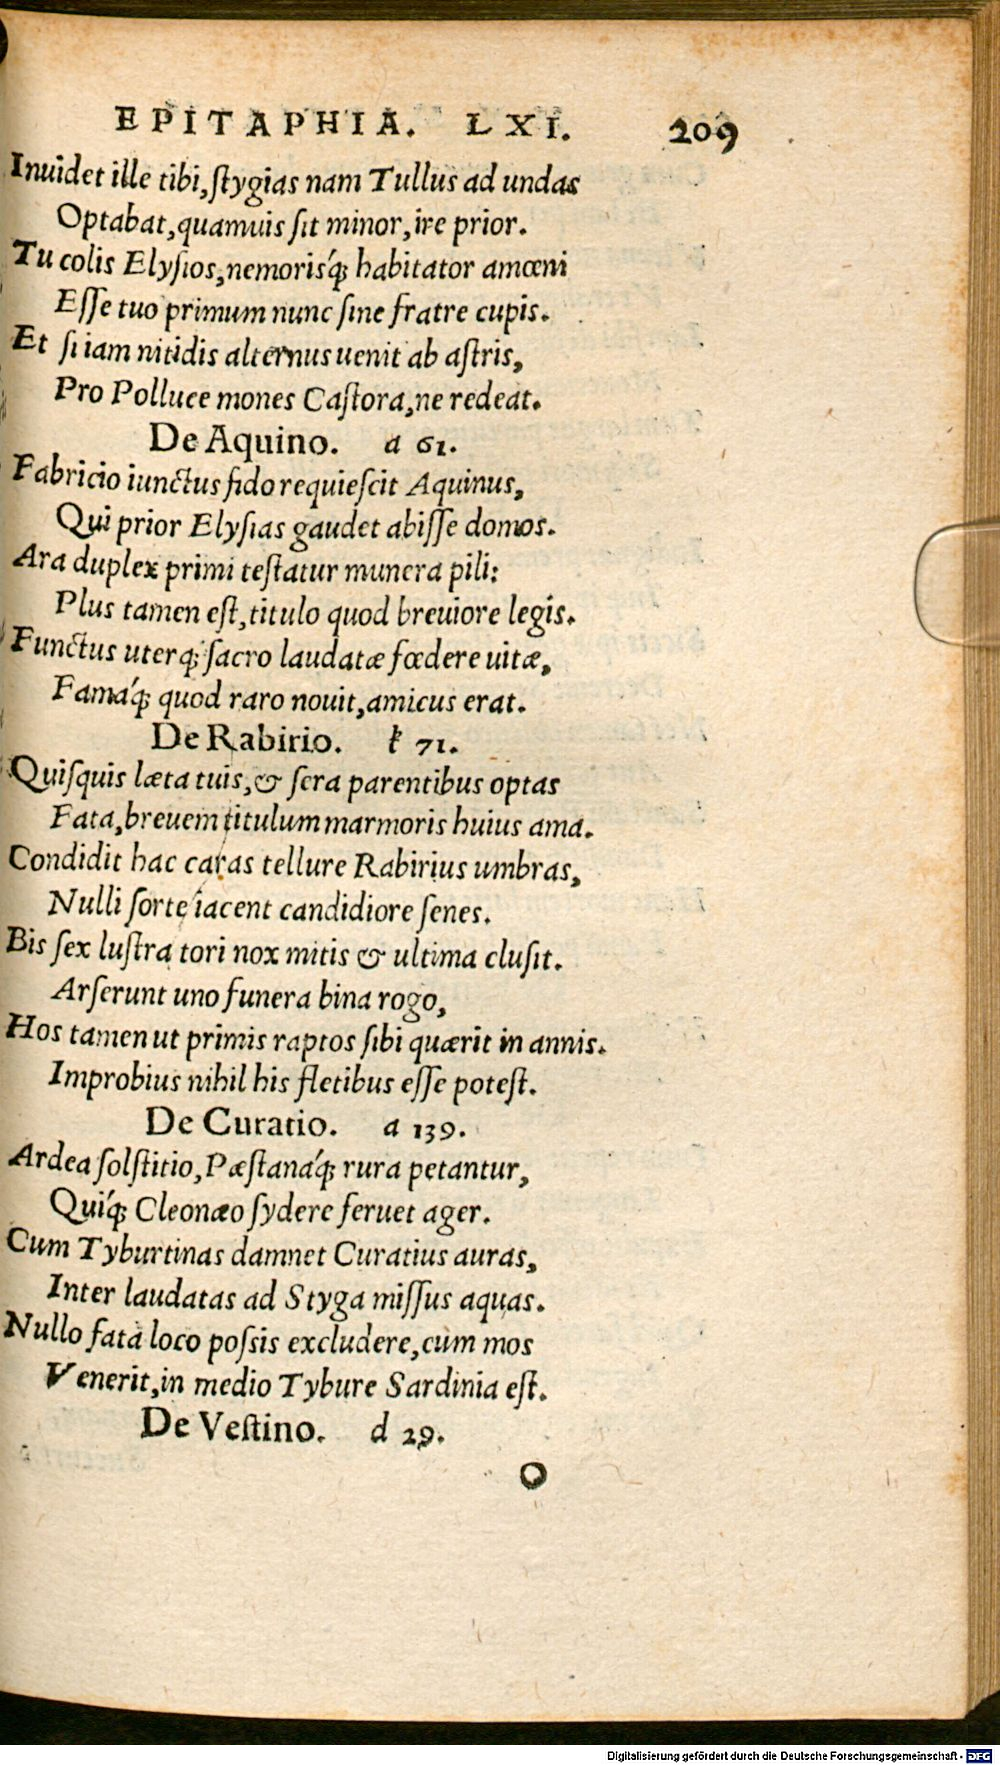 EPITAPHIA. LXI. 209
Inuidet ille tibi, ſtygias nam Tullus ad undas
Optabat, quamuis ſit minor, ire prior.
Tu colis Elyſios, nemoriśq; habitator amœni
Eſſe tuo primum nunc ſine fratre cupis.
Et ſi iam nitidis alternus uenit ab aſtris,
Pro Polluce mones Caſtora, ne redeat.
De Aquino. a 61.
Fabricio iunctus fido requieſcit Aquinus,
Qui prior Elyſias gaudet abiſſe domos.
Ara duplex primi teſtatur munera pili:
Plus tamen eſt, titulo quod breuiore legis.
Functus uterq; ſacro laudatæ fœdere uitæ,
Famáq; quod raro nouit, amicus erat.
De Rabirio. k 71.
Quiſquis læta tuis, & ſera parentibus optas
Fata, breuem titulum marmoris huius ama.
Condidit hac caras tellure Rabirius umbras,
Nulli ſorte iacent candidiore ſenes.
Bis ſex luſtra tori nox mitis & ultima cluſit.
Arſerunt uno funera bina rogo,
Hos tamen ut primis raptos ſibi quærit in annis.
Improbius nihil his fletibus eſſe poteſt.
De Curatio. a 139.
Ardea ſolſtitio, Pæſtanáq; rura petantur,
Quíq; Cleonæo ſydere feruet ager.
Cum Tyburtinas damnet Curatius auras,
Inter laudatas ad Styga miſſus aquas.
Nullo fata loco poſsis excludere, cum mos
Venerit, in medio Tybure Sardinia eſt.
De Veſtino. d 29.
O
Digitalisierung gefördert durch die Deutsche Forschungsgemeinschaft - DFG